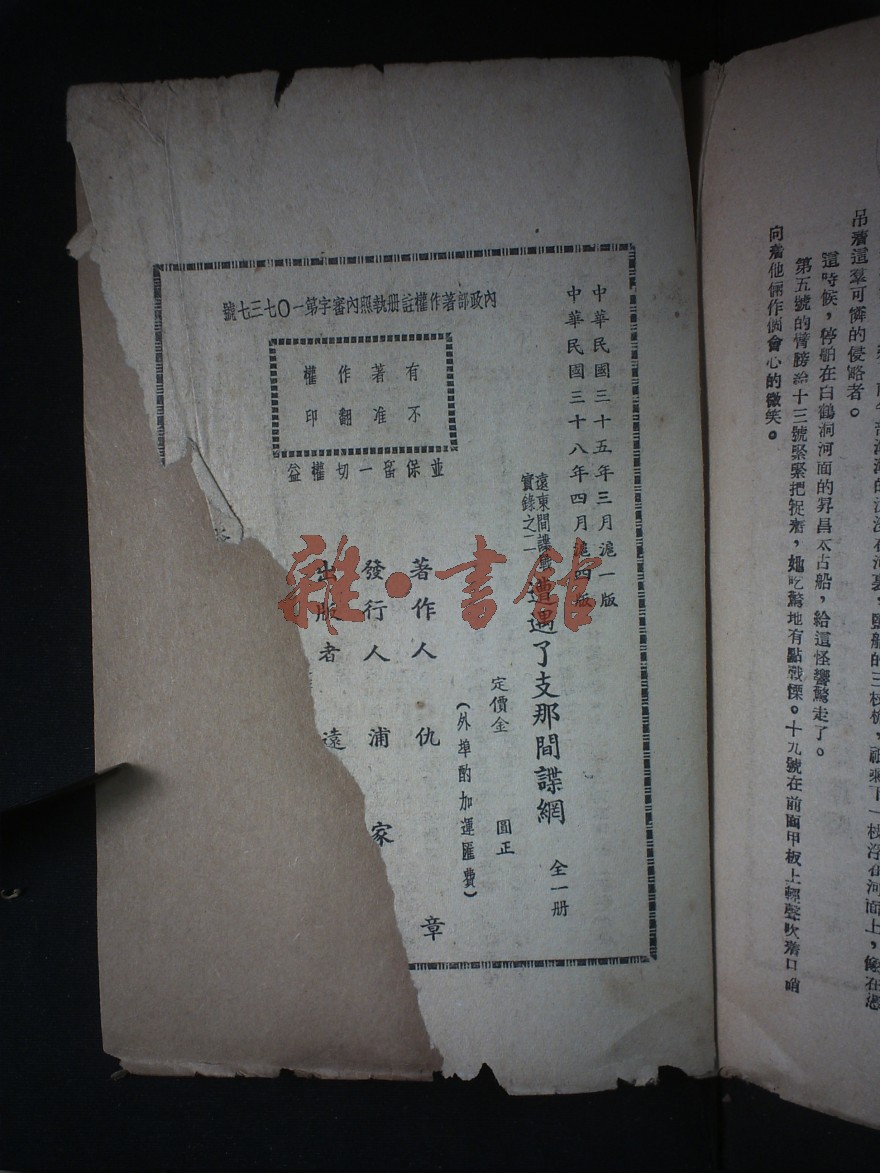 吊着這羣可憐的侵略者。
這時候，停舶在白鶴洞河面的昇昌太古船，給這怪響驚走了。
第五號的臂膀給十三號緊緊把捉着，她吃驚地有點戰慄。十九號在前面甲板上輕聲吹着口哨
向着他倆作個會心的微笑。
中華民國三十五年三月滬一版
中華民國三十八年四月滬四版
遠東間諜
實錄之二
遭遇了支那間諜網 全一册
定價金 圓正
(外埠酌加運匯費)
內政部著作權註册執照內審字第一〇七三七號
有著作權
不准翻印
並保留一切權益
著作人 仇 章
發行人 浦家
出版者 遠
雜·書館